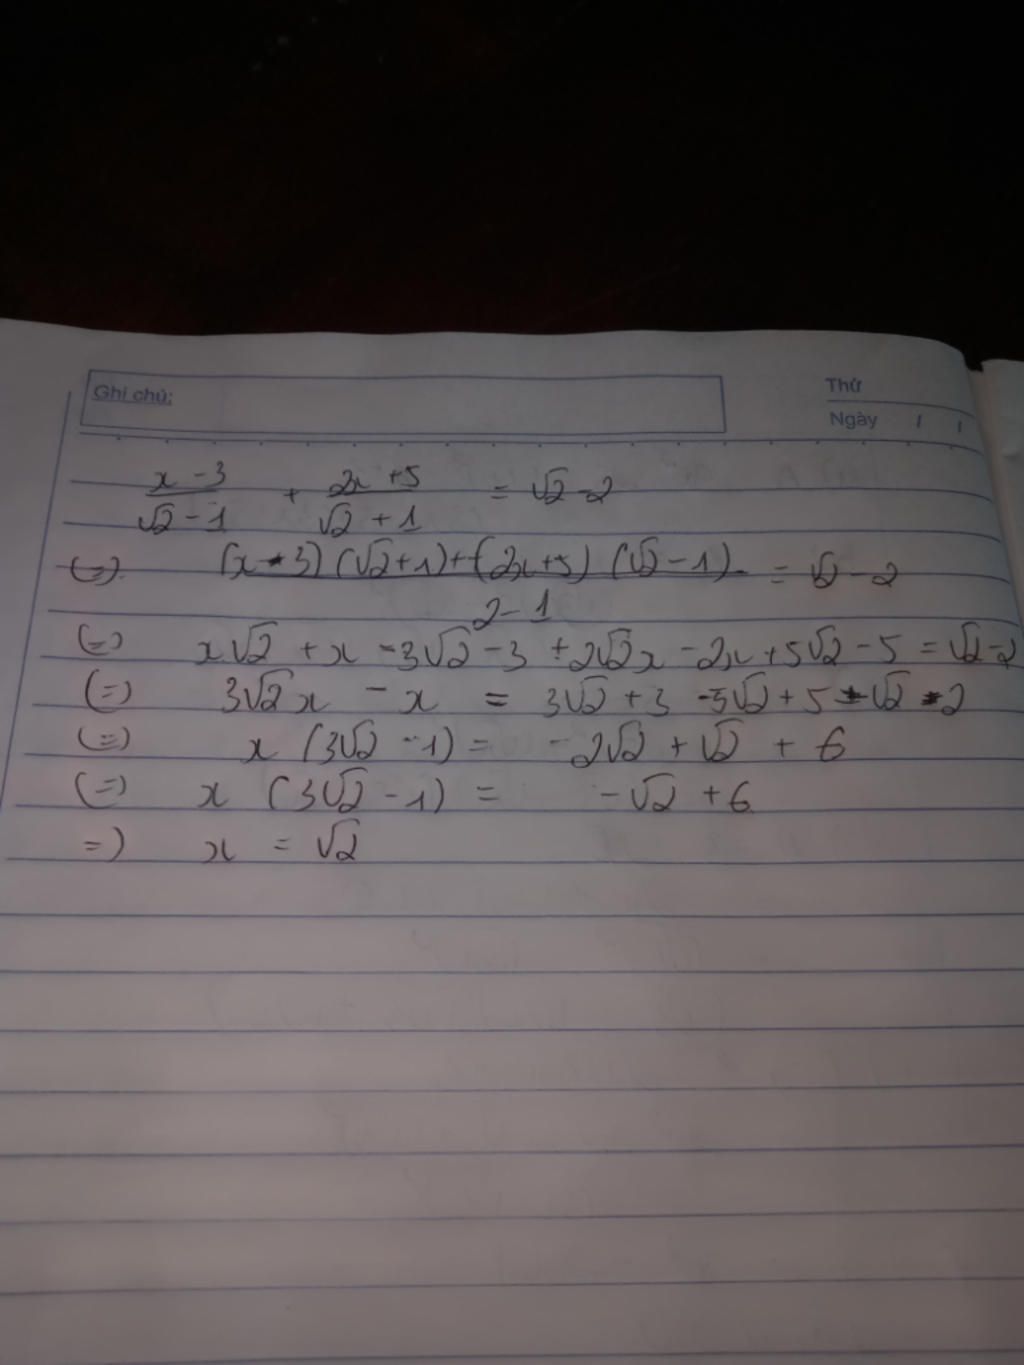 Ghi chú:
Thứ
Ngày / /
x - 3 / √2 - 1 + 2x + 5 / √2 + 1 = √2 - 2
(=) (x - 3)(√2 + 1) + (2x + 5)(√2 - 1) / 2 - 1 = √2 - 2
(=) x√2 + x - 3√2 - 3 + 2√2x - 2x + 5√2 - 5 = √2 - 2
(=) 3√2x - x = 3√2 + 3 - 5√2 + 5 + √2 - 2
(=) x (3√2 - 1) = - 2√2 + √2 + 6
(=) x (3√2 - 1) = - √2 + 6
=) x = √2